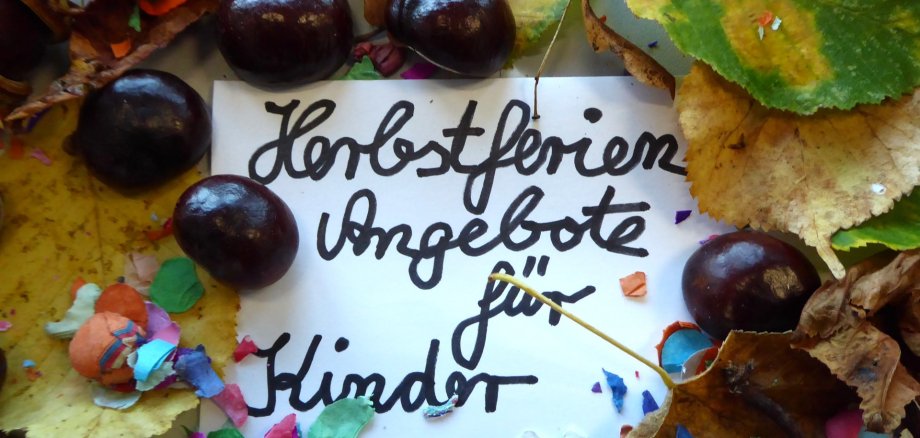 Herbstferien
Angebote
für
Kinder